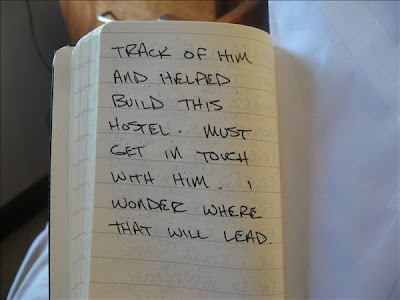 TRACK OF HIM
AND HELPED
BUILD THIS
HOSTEL. MUST
GET IN TOUCH
WITH HIM. I
WONDER WHERE
THAT WILL LEAD.